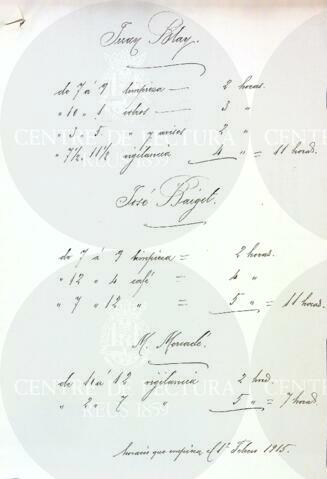 Juan Blay.
de 7 á 9 limpieza — 2 horas.
" 10 " 1 cobros — 3 "
" 3 " 5 " y avisos 2 "
" 7½ " 11½ vigilancia 4 " = 11 horas.
José Baiget.
de 7 á 9 limpieza = 2 horas.
" 12 " 4 café = 4 "
" 7 " 12 " = 5 " = 11 horas.
M. Mercadé.
de 10 á 12 vigilancia 2 horas
" 2 " 7 — " — 5 " = 7 horas.
horario que empieza el 1º Febrero 1915.
CENTRE DE LECTURA
REUS 1859
CENTRE DE LECTURA
REUS 1859